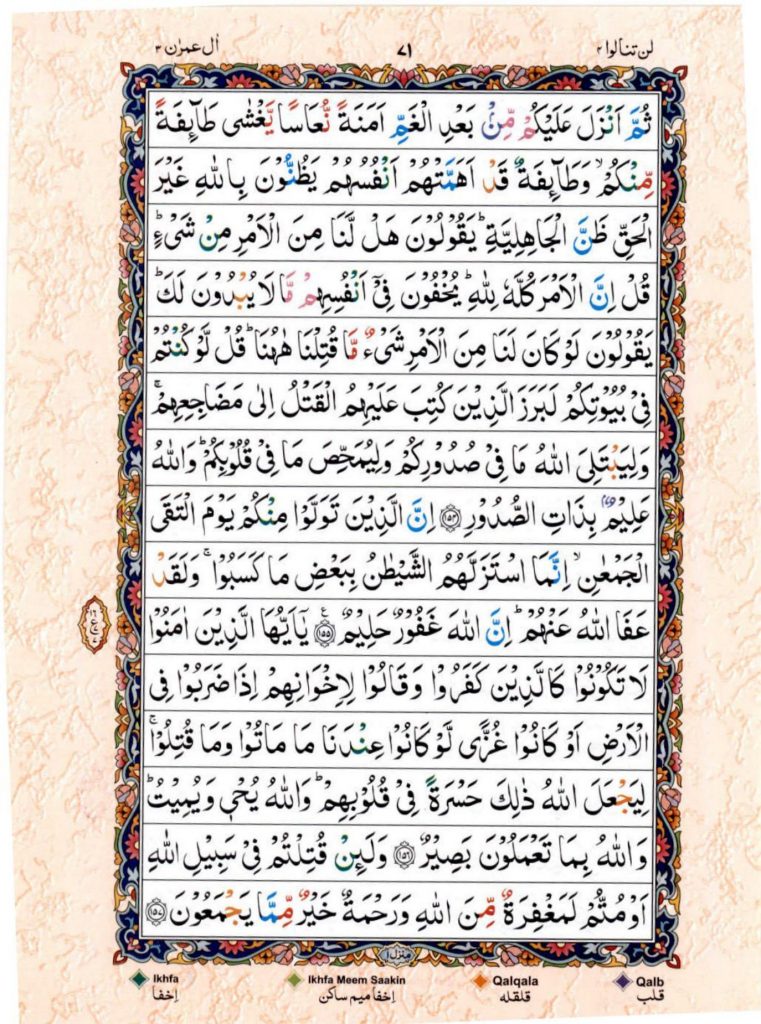 لن تنالوا ۴
۷۱
اٰل عمرٰن ۳
ثُمَّ اَنْزَلَ عَلَيْكُمْ مِّنْۢ بَعْدِ الْغَمِّ اَمَنَةً نُّعَاسًا يَّغْشٰى طَآئِفَةً
مِّنْكُمْ ۙ وَطَآئِفَةٌ قَدْ اَهَمَّتْهُمْ اَنْفُسُهُمْ يَظُنُّوْنَ بِاللّٰهِ غَيْرَ
الْحَقِّ ظَنَّ الْجَاهِلِيَّةِ ؕ يَقُوْلُوْنَ هَلْ لَّنَا مِنَ الْاَمْرِ مِنْ شَىْءٍ ؕ
قُلْ اِنَّ الْاَمْرَ كُلَّهٗ لِلّٰهِ ؕ يُخْفُوْنَ فِىْۤ اَنْفُسِهِمْ مَّا لَا يُبْدُوْنَ لَكَ ؕ
يَقُوْلُوْنَ لَوْ كَانَ لَنَا مِنَ الْاَمْرِ شَىْءٌ مَّا قُتِلْنَا هٰهُنَا ؕ قُلْ لَّوْ كُنْتُمْ
فِىْ بُيُوْتِكُمْ لَبَرَزَ الَّذِيْنَ كُتِبَ عَلَيْهِمُ الْقَتْلُ اِلٰى مَضَاجِعِهِمْ ۚ
وَلِيَبْتَلِىَ اللّٰهُ مَا فِىْ صُدُوْرِكُمْ وَلِيُمَحِّصَ مَا فِىْ قُلُوْبِكُمْ ؕ وَاللّٰهُ
عَلِيْمٌۢ بِذَاتِ الصُّدُوْرِ ﴿۱۵۴﴾ اِنَّ الَّذِيْنَ تَوَلَّوْا مِنْكُمْ يَوْمَ الْتَقَى
الْجَمْعٰنِ ۙ اِنَّمَا اسْتَزَلَّهُمُ الشَّيْطٰنُ بِبَعْضِ مَا كَسَبُوْا ۚ وَلَقَدْ
عَفَا اللّٰهُ عَنْهُمْ ؕ اِنَّ اللّٰهَ غَفُوْرٌ حَلِيْمٌ ﴿۱۵۵﴾ ع يٰۤاَيُّهَا الَّذِيْنَ اٰمَنُوْا
لَا تَكُوْنُوْا كَالَّذِيْنَ كَفَرُوْا وَقَالُوْا لِاِخْوَانِهِمْ اِذَا ضَرَبُوْا فِى
الْاَرْضِ اَوْ كَانُوْا غُزًّى لَّوْ كَانُوْا عِنْدَنَا مَا مَاتُوْا وَمَا قُتِلُوْا ۚ
لِيَجْعَلَ اللّٰهُ ذٰلِكَ حَسْرَةً فِىْ قُلُوْبِهِمْ ؕ وَاللّٰهُ يُحْىٖ وَيُمِيْتُ ؕ
وَاللّٰهُ بِمَا تَعْمَلُوْنَ بَصِيْرٌ ﴿۱۵۶﴾ وَلَئِنْ قُتِلْتُمْ فِىْ سَبِيْلِ اللّٰهِ
اَوْ مُتُّمْ لَمَغْفِرَةٌ مِّنَ اللّٰهِ وَرَحْمَةٌ خَيْرٌ مِّمَّا يَجْمَعُوْنَ ﴿۱۵۷﴾
منزل ۱
Ikhfa
Ikhfa Meem Saakin
Qalqala
Qalb
اِخفا
اِخفا میم ساکن
قلقله
قلب